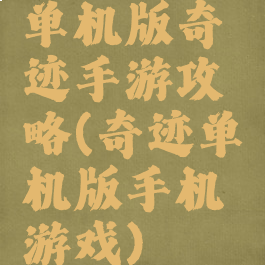 单机版奇
迹手游攻
略(奇迹单
机版手机
游戏)